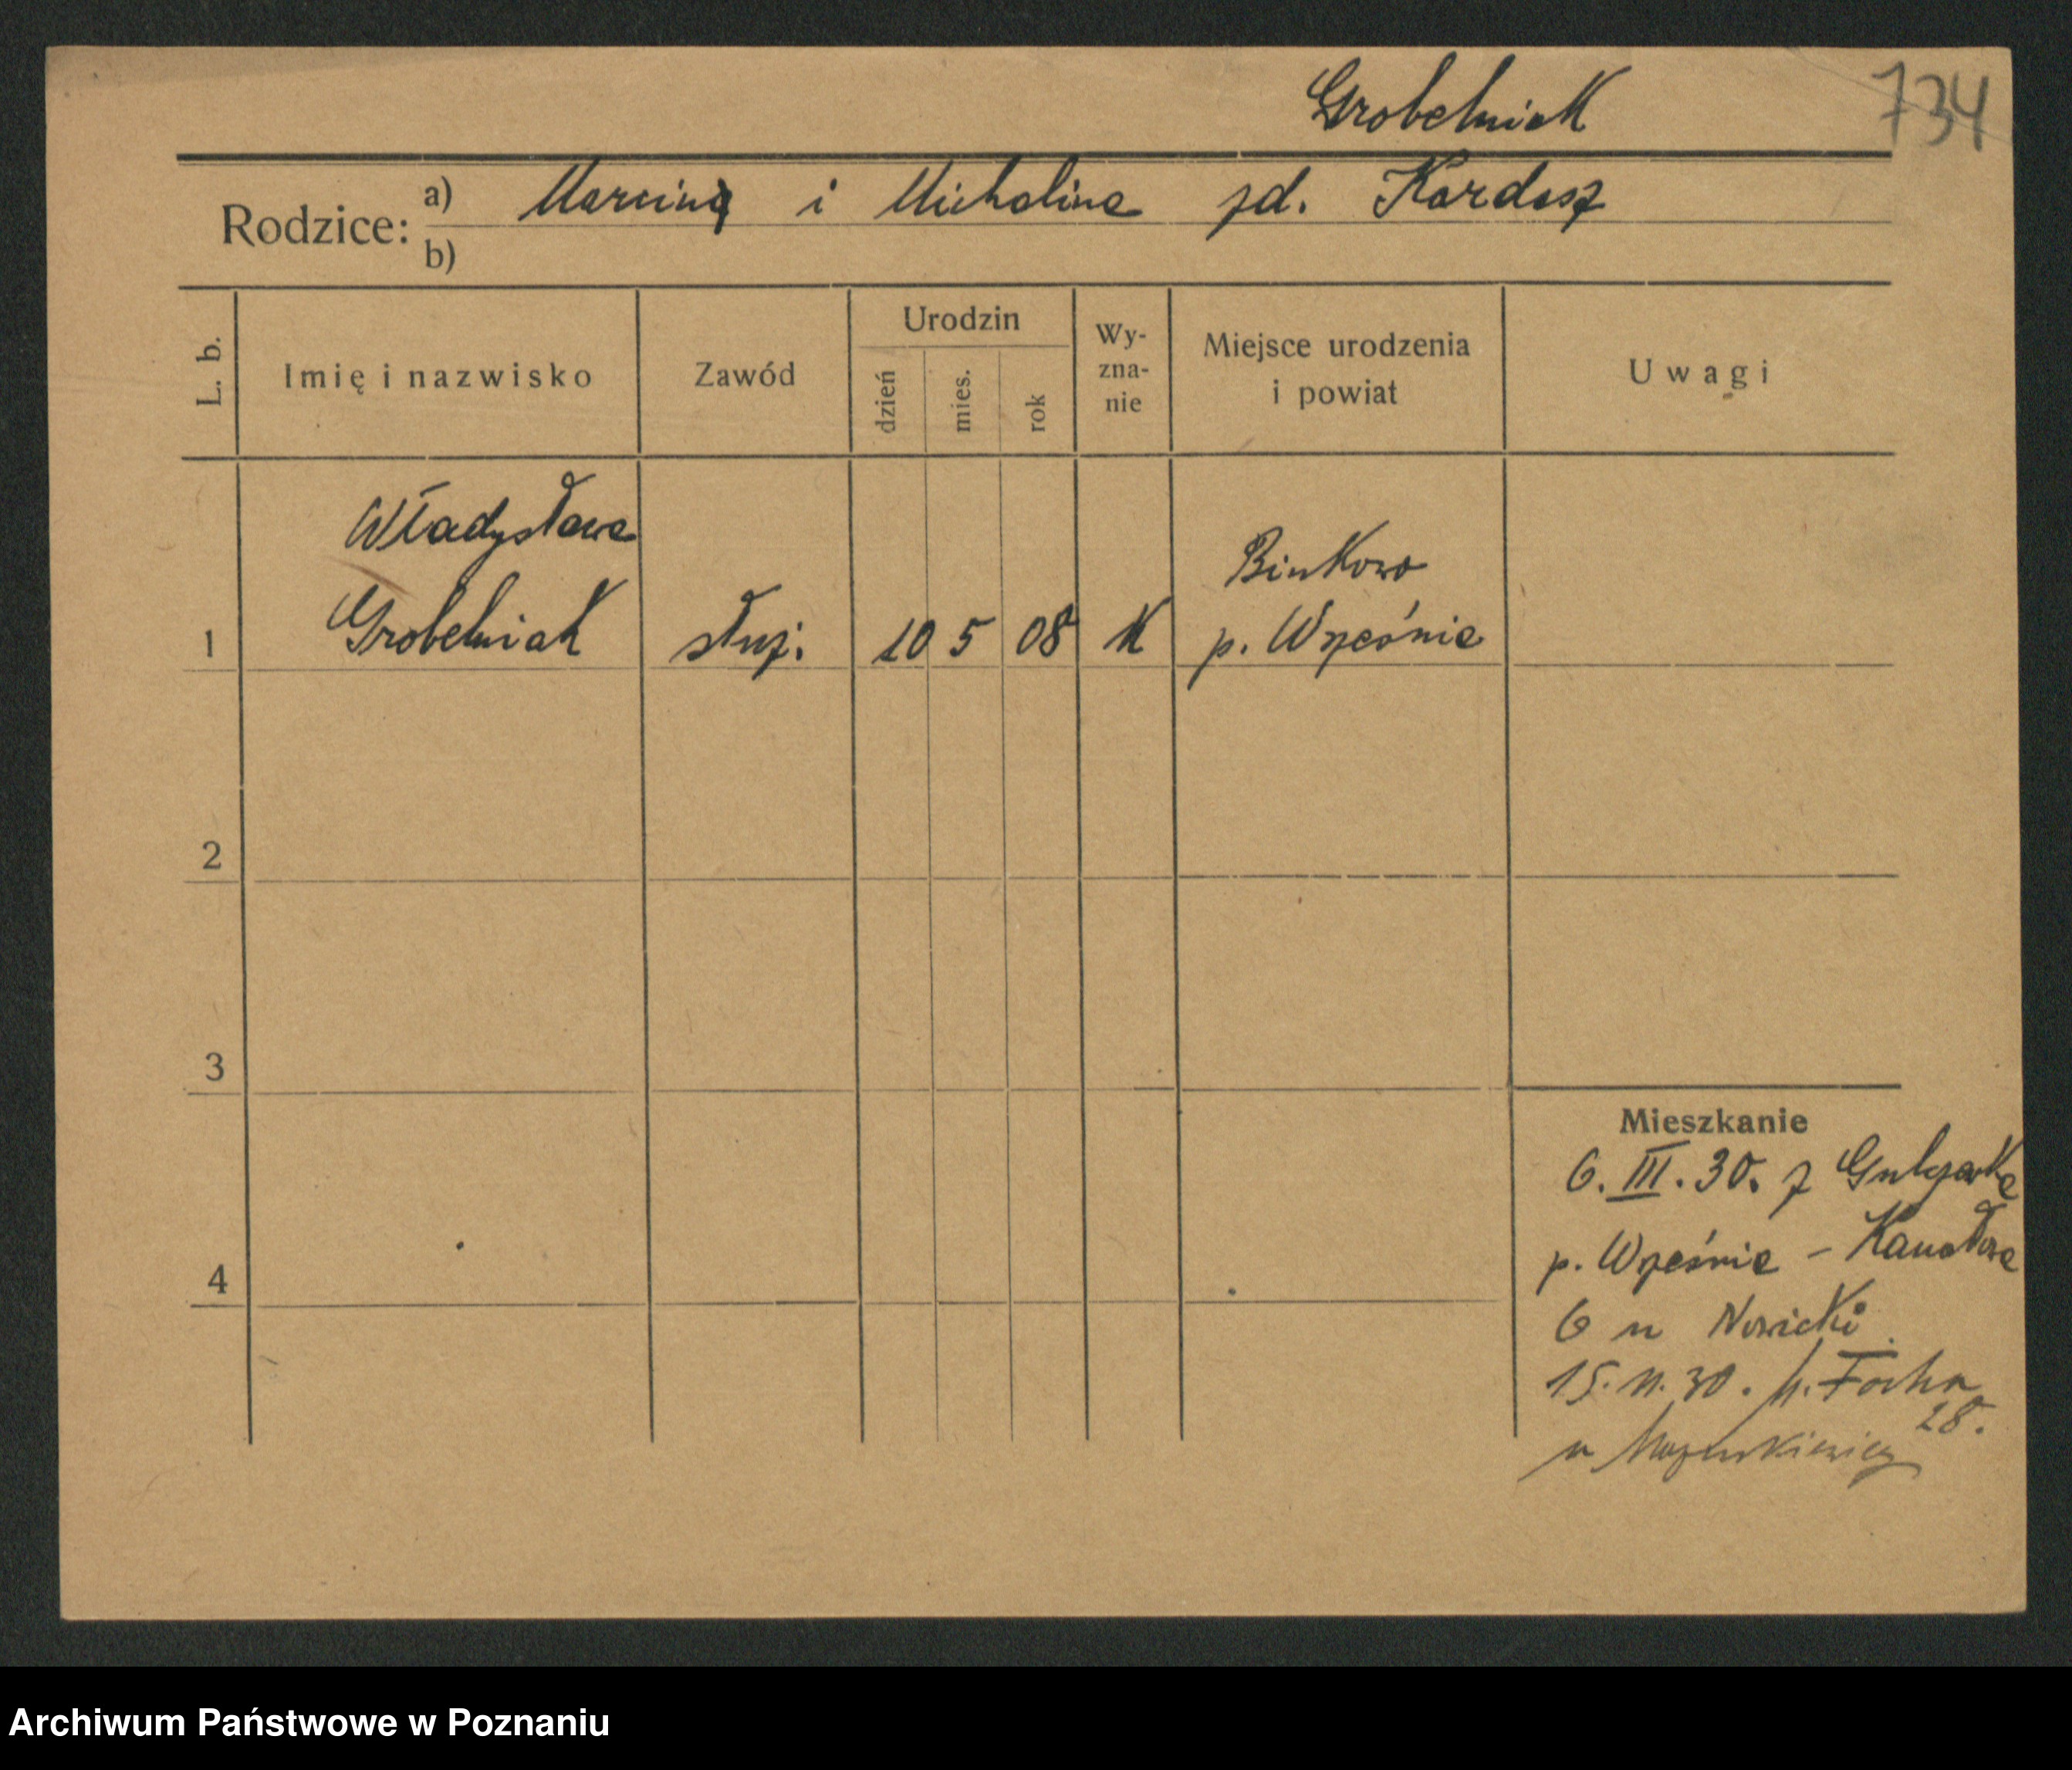 Grobelniak
734
Rodzice: a) Marcina i Michalina zd. Kardasz
b)
L. b. Imię i nazwisko Zawód Urodzin dzień mies. rok Wy-zna-nie Miejsce urodzenia i powiat Uwagi
Władysława
Grobelniak
Binkowo
1 służ. 10 5 08 K p. Września
2
3
4
Mieszkanie
6. III. 30. z
p. Września –
6 u Nowicki
15. 11. 30. Focha
28.
u Mazurkiewicz
Archiwum Państwowe w Poznaniu